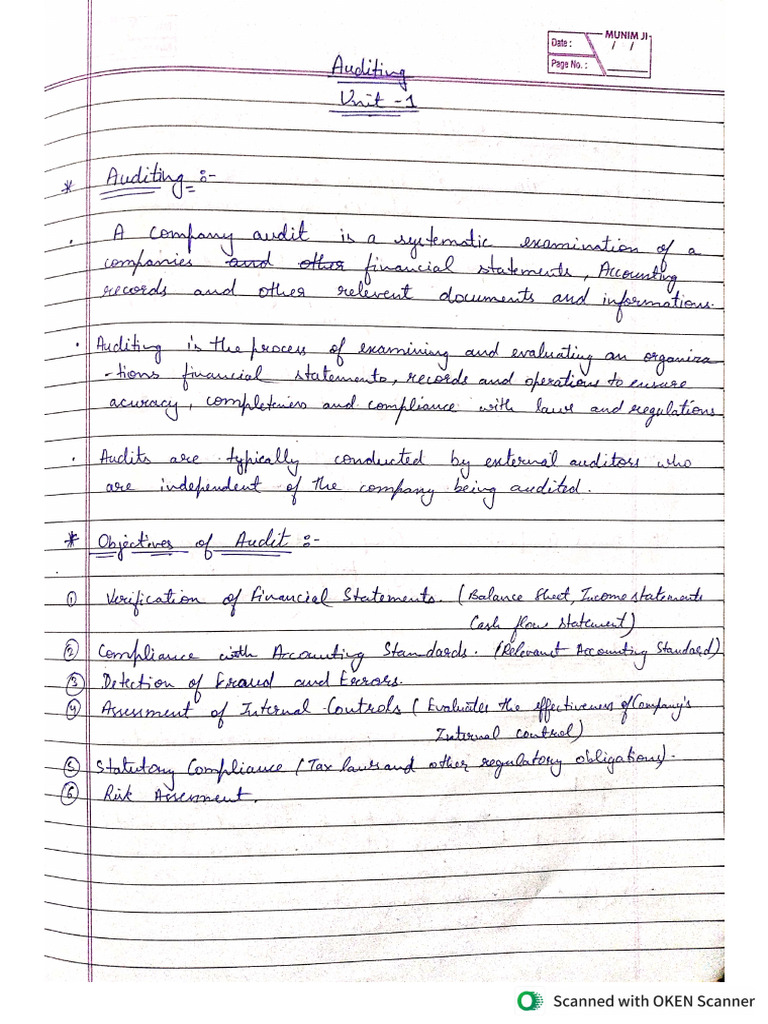 MUNIM JI
Date : / /
Page No. :
Auditing
Unit - 1
* Auditing :-
. A company audit is a systematic examination of a
companies and other financial statements, Accounting
records and other relevent documents and informations.
. Auditing is the process of examining and evaluating an organiza
-tions financial statements, records and operations to ensure
acuracy, completeness and compliance with laws and regulations
. Audits are typically conducted by external auditors who
are independent of the company being audited.
* Objectives of Audit :-
① Verification of Financial Statements. (Balance Sheet, Income statements
Cash flow statement)
② Compliance with Accounting Standards. (Relevant Accounting Standard)
③ Detection of Fraud and Errors.
④ Assessment of Internal Controls (Evaluates the effectiveness of Company's
Internal control)
⑤ Statutory Compliance (Tax laws and other regulatory obligations).
⑥ Risk Assessment.
Scanned with OKEN Scanner